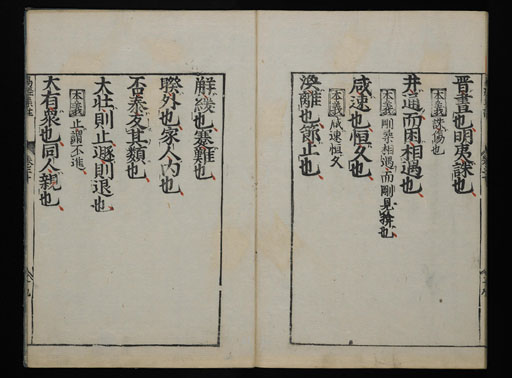 晋晝也明夷誅也
本義誅傷也
井通而困相遇也
本義剛柔相遇而剛見揜也
咸速也恒久也
本義咸速恒久
渙離也節止也
解緩也蹇難也
睽外也家人内也
否泰反其類也
大壯則止遯則退也
本義止謂不進
大有衆也同人親也